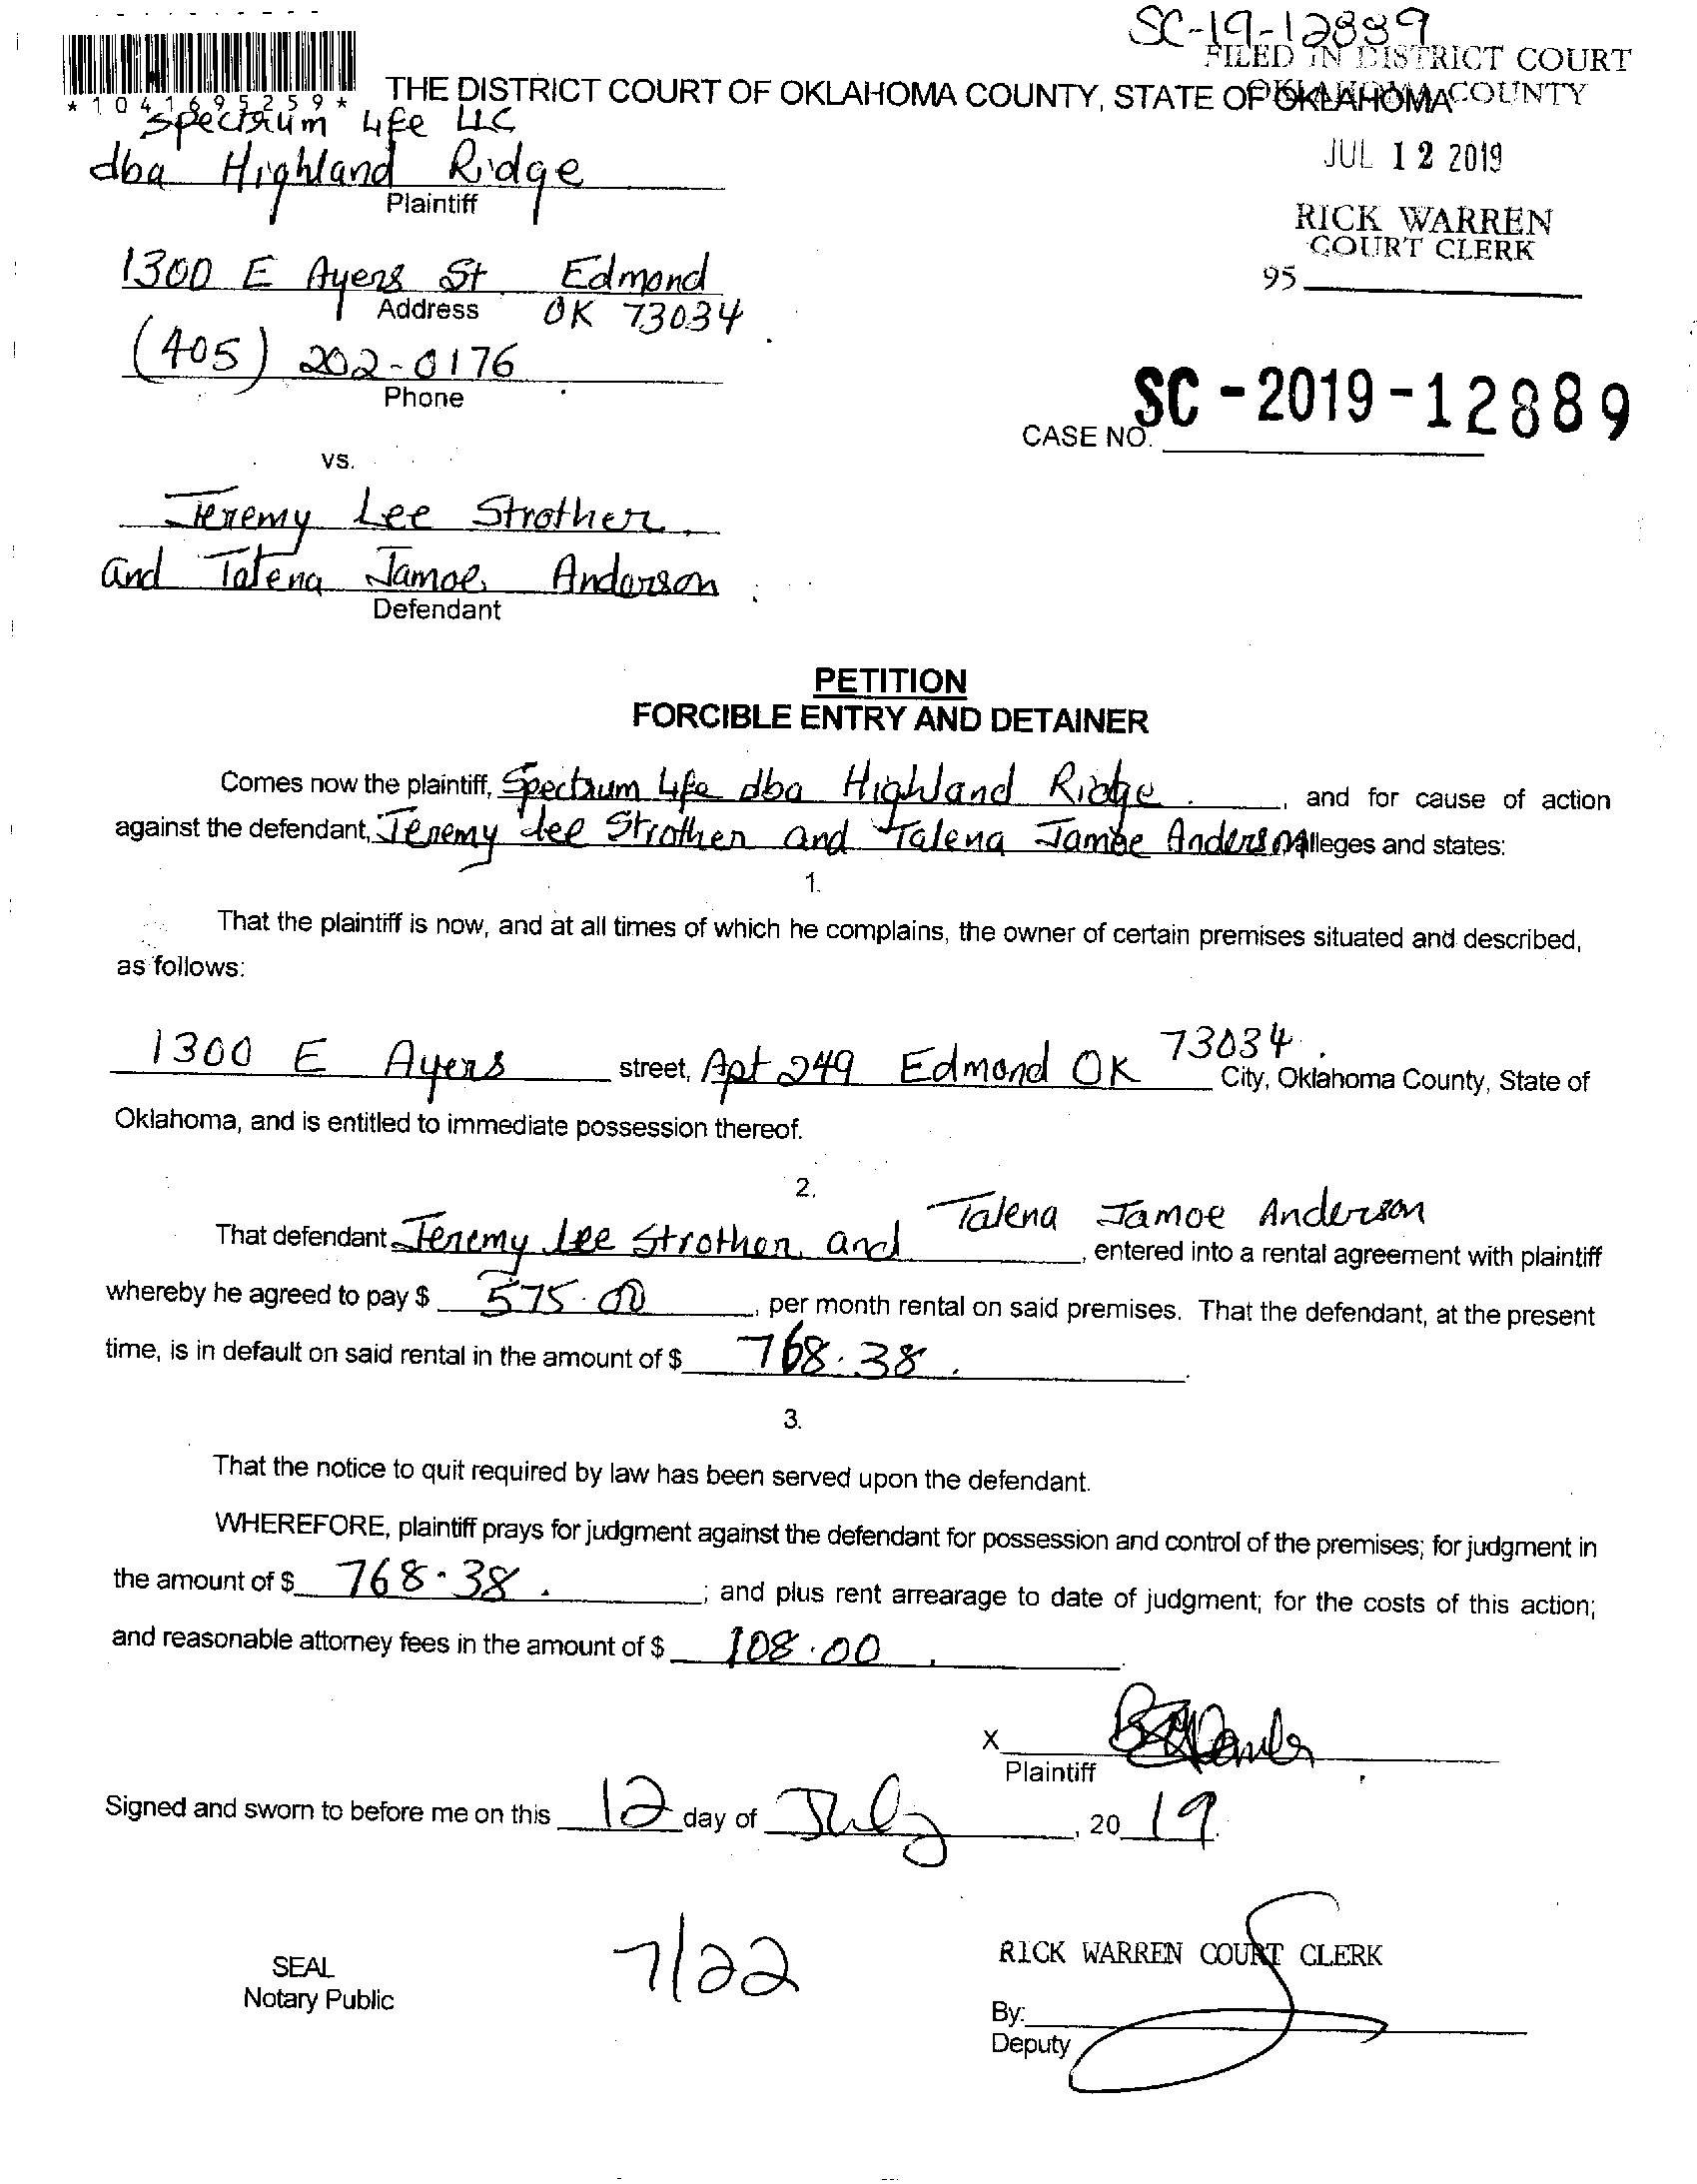 SC-19-12889
FILED IN DISTRICT COURT
OKLAHOMA COUNTY
*1041695259*
THE DISTRICT COURT OF OKLAHOMA COUNTY, STATE OF OKLAHOMA
Spectrum Life LLC
dba Highland Ridge
Plaintiff
JUL 12 2019
RICK WARREN
COURT CLERK
95
1300 E Ayers St Edmond
Address
OK 73034
(405) 202-0176
Phone
SC-2019-12889
CASE NO.
vs.
Jeremy Lee Strother
and Talena Jamoe Anderson
Defendant
PETITION
FORCIBLE ENTRY AND DETAINER
Comes now the plaintiff, Spectrum Life dba Highland Ridge, and for cause of action
against the defendant, Jeremy Lee Strother and Talena Jamoe Anderson alleges and states:
1.
That the plaintiff is now, and at all times of which he complains, the owner of certain premises situated and described,
as follows:
1300 E Ayers street, Apt 249 Edmond OK 73034. City, Oklahoma County, State of
Oklahoma, and is entitled to immediate possession thereof.
2.
That defendant Jeremy Lee Strother and Talena Jamoe Anderson, entered into a rental agreement with plaintiff
whereby he agreed to pay $ 575.00, per month rental on said premises. That the defendant, at the present
time, is in default on said rental in the amount of $ 768.38.
3.
That the notice to quit required by law has been served upon the defendant.
WHEREFORE, plaintiff prays for judgment against the defendant for possession and control of the premises; for judgment in
the amount of $ 768.38.; and plus rent arrearage to date of judgment; for the costs of this action;
and reasonable attorney fees in the amount of $ 108.00.
X
Plaintiff
Signed and sworn to before me on this 12 day of July, 2019.
SEAL
Notary Public
7/22
RICK WARREN COURT CLERK
By:
Deputy